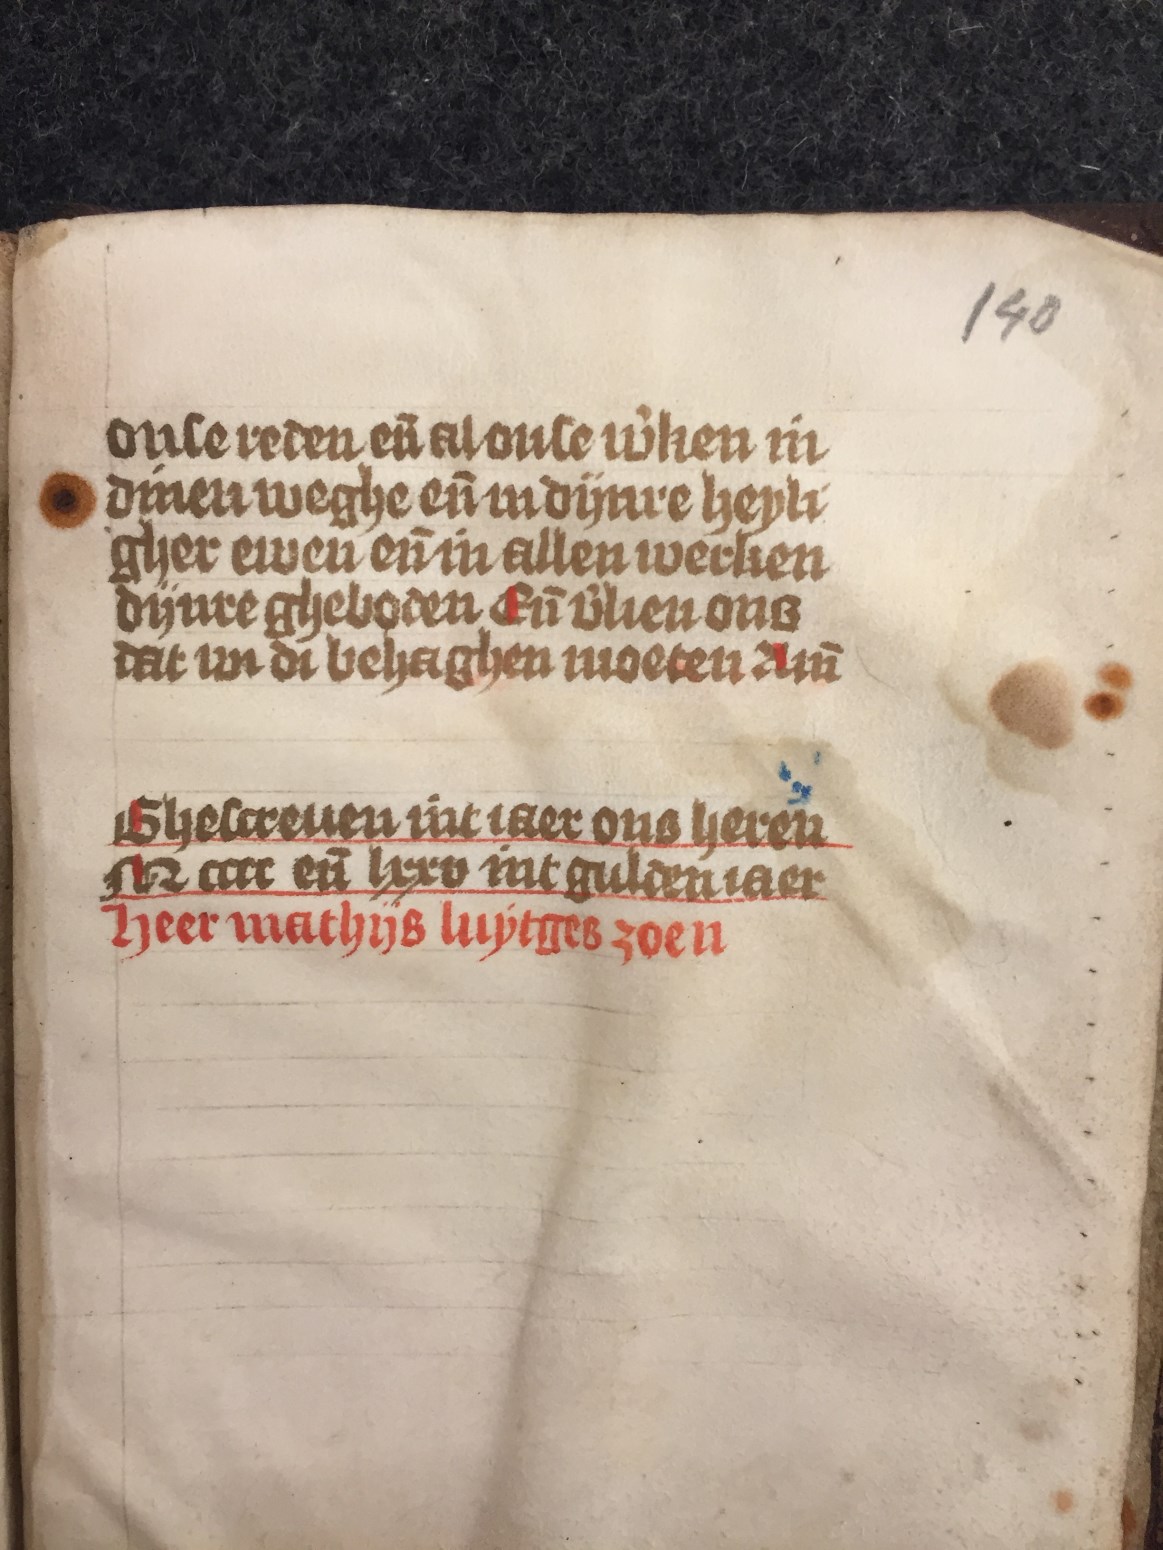 140
onse reden en̄ al onse w̓ken in
dinen weghe en̄ in dijnre heyli
gher ewen en̄ in allen werken
dijnre gheboden En̄ v̓lien ons
dat wi di behaghen moeten Am̄
Ghescreuen int iaer ons heren
M cccc en̄ lxxv int gulden iaer
Heer mathijs luytges zoen